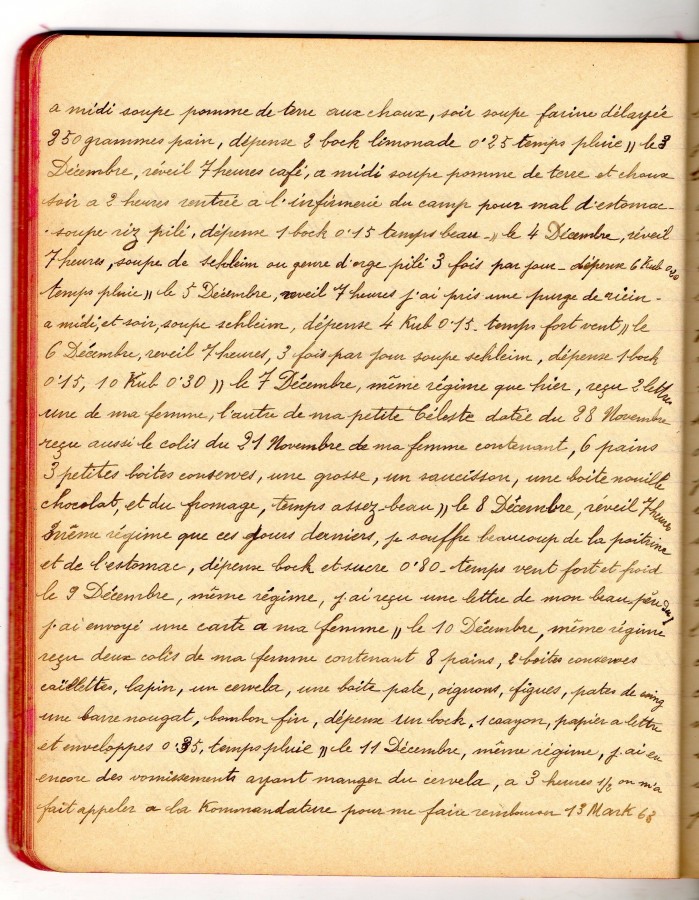 a midi soupe pomme de terre aux choux, soir soupe farine délayée
350 grammes pain, dépense 2 bock limonade 0'25 temps pluie ,, le 3
Décembre, réveil 7 heures café, a midi soupe pomme de terre et choux
soir a 2 heures rentrée a l'infirmerie du camp pour mal d'estomac -
soupe riz pilé, dépense 1 bock 0'15 temps beau - ,, le 4 Décembre, réveil
7 heures, soupe de schleim ou genre d'orge pilé 3 fois par jour - dépense 6 Kub 0'20
temps pluie ,, le 5 Décembre, reveil 7 heures j'ai pris une purge de ricin -
a midi, et soir, soupe schleim, dépense 4 Kub 0'15. temps fort vent ,, le
6 Décembre, reveil 7 heures, 3 fois par jour soupe schleim, dépense 1 bock
0'15, 10 Kub 0'30 ,, le 7 Décembre, même régime que hier, reçu 2 lettre
une de ma femme, l'autre de ma petite Céleste datée du 28 Novembre
reçu aussi le colis du 21 Novembre de ma femme contenant, 6 pains
3 petites boites conserves, une grosse, un saucisson, une boite nouille
chocolat, et du fromage, temps assez beau ,, le 8 Décembre, réveil 7 heures
même régime que ces jours derniers, je souffe beaucoup de la poitrine
et de l'estomac, dépense bock et sucre 0'80 - temps vent fort et froid
le 9 Décembre, même régime, j'ai reçu une lettre de mon beau père
j'ai envoyé une carte a ma femme ,, le 10 Décembre, même régime
reçu deux colis de ma femme contenant 8 pains, 2 boites conserves
caïllettes, lapin, un cervela, une boite pate, oignons, figues, pates de coing
une barre nougat, bombon fin, dépense un bock, 1 crayon, papier a lettre
et enveloppes 0'35, temps pluie ,, le 11 Décembre, même régime, j'ai eu
encore des vomissements ayant manger du cervela, a 3 heures 1/2 on m'a
fait appeler a la Kommandature pour me faire rembourser 13 Mark 68